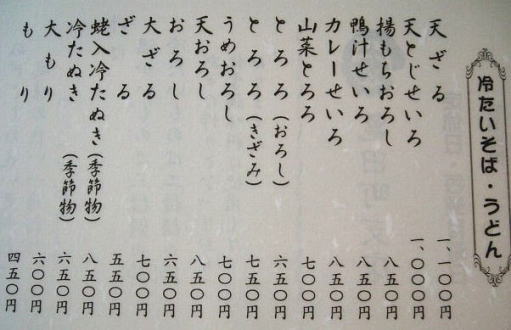 冷たいそば・うどん
天ざる 一、一〇〇円
天とじせいろ 一、〇〇〇円
揚もちおろし 八五〇円
鴨汁せいろ 八五〇円
カレーせいろ 八五〇円
山菜とろろ 七〇〇円
とろろ(おろし) 六五〇円
とろろ(きざみ) 七五〇円
うめおろし 七〇〇円
天おろし 八五〇円
おろし 六五〇円
大ざる 七〇〇円
ざる 五五〇円
蛯入冷たぬき(季節物) 八五〇円
冷たぬき(季節物) 六五〇円
大もり 六〇〇円
もり 四五〇円